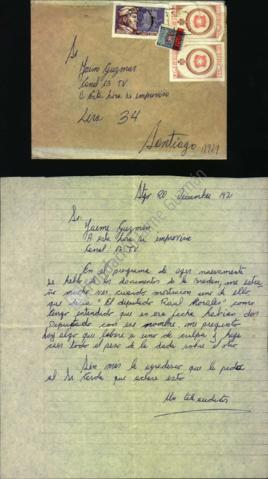 Sr
Jaime Guzman
Canal 13 TV.
A esta hora se improvisa
Lira 34
Santiago
Stgo 20 diciembre 1971
Sr.
Jaime Guzman
A esta hora se improvisa
Canal 13 TV.
En el programa de ayer nuevamente
se habló de los documentos de la
mucho ver, cuando mostraron uno de ellos
que decia "El diputado Raul Morales" como
tengo entendido que en esa fecha habian dos
Diputados con ese nombre, me pregunto
hay algo que sobre a uno de culpa y deje
caer todo el peso de la duda sobre el otro
Sin mas le agradecer que le pida
al Sr. que aclare esto
Un